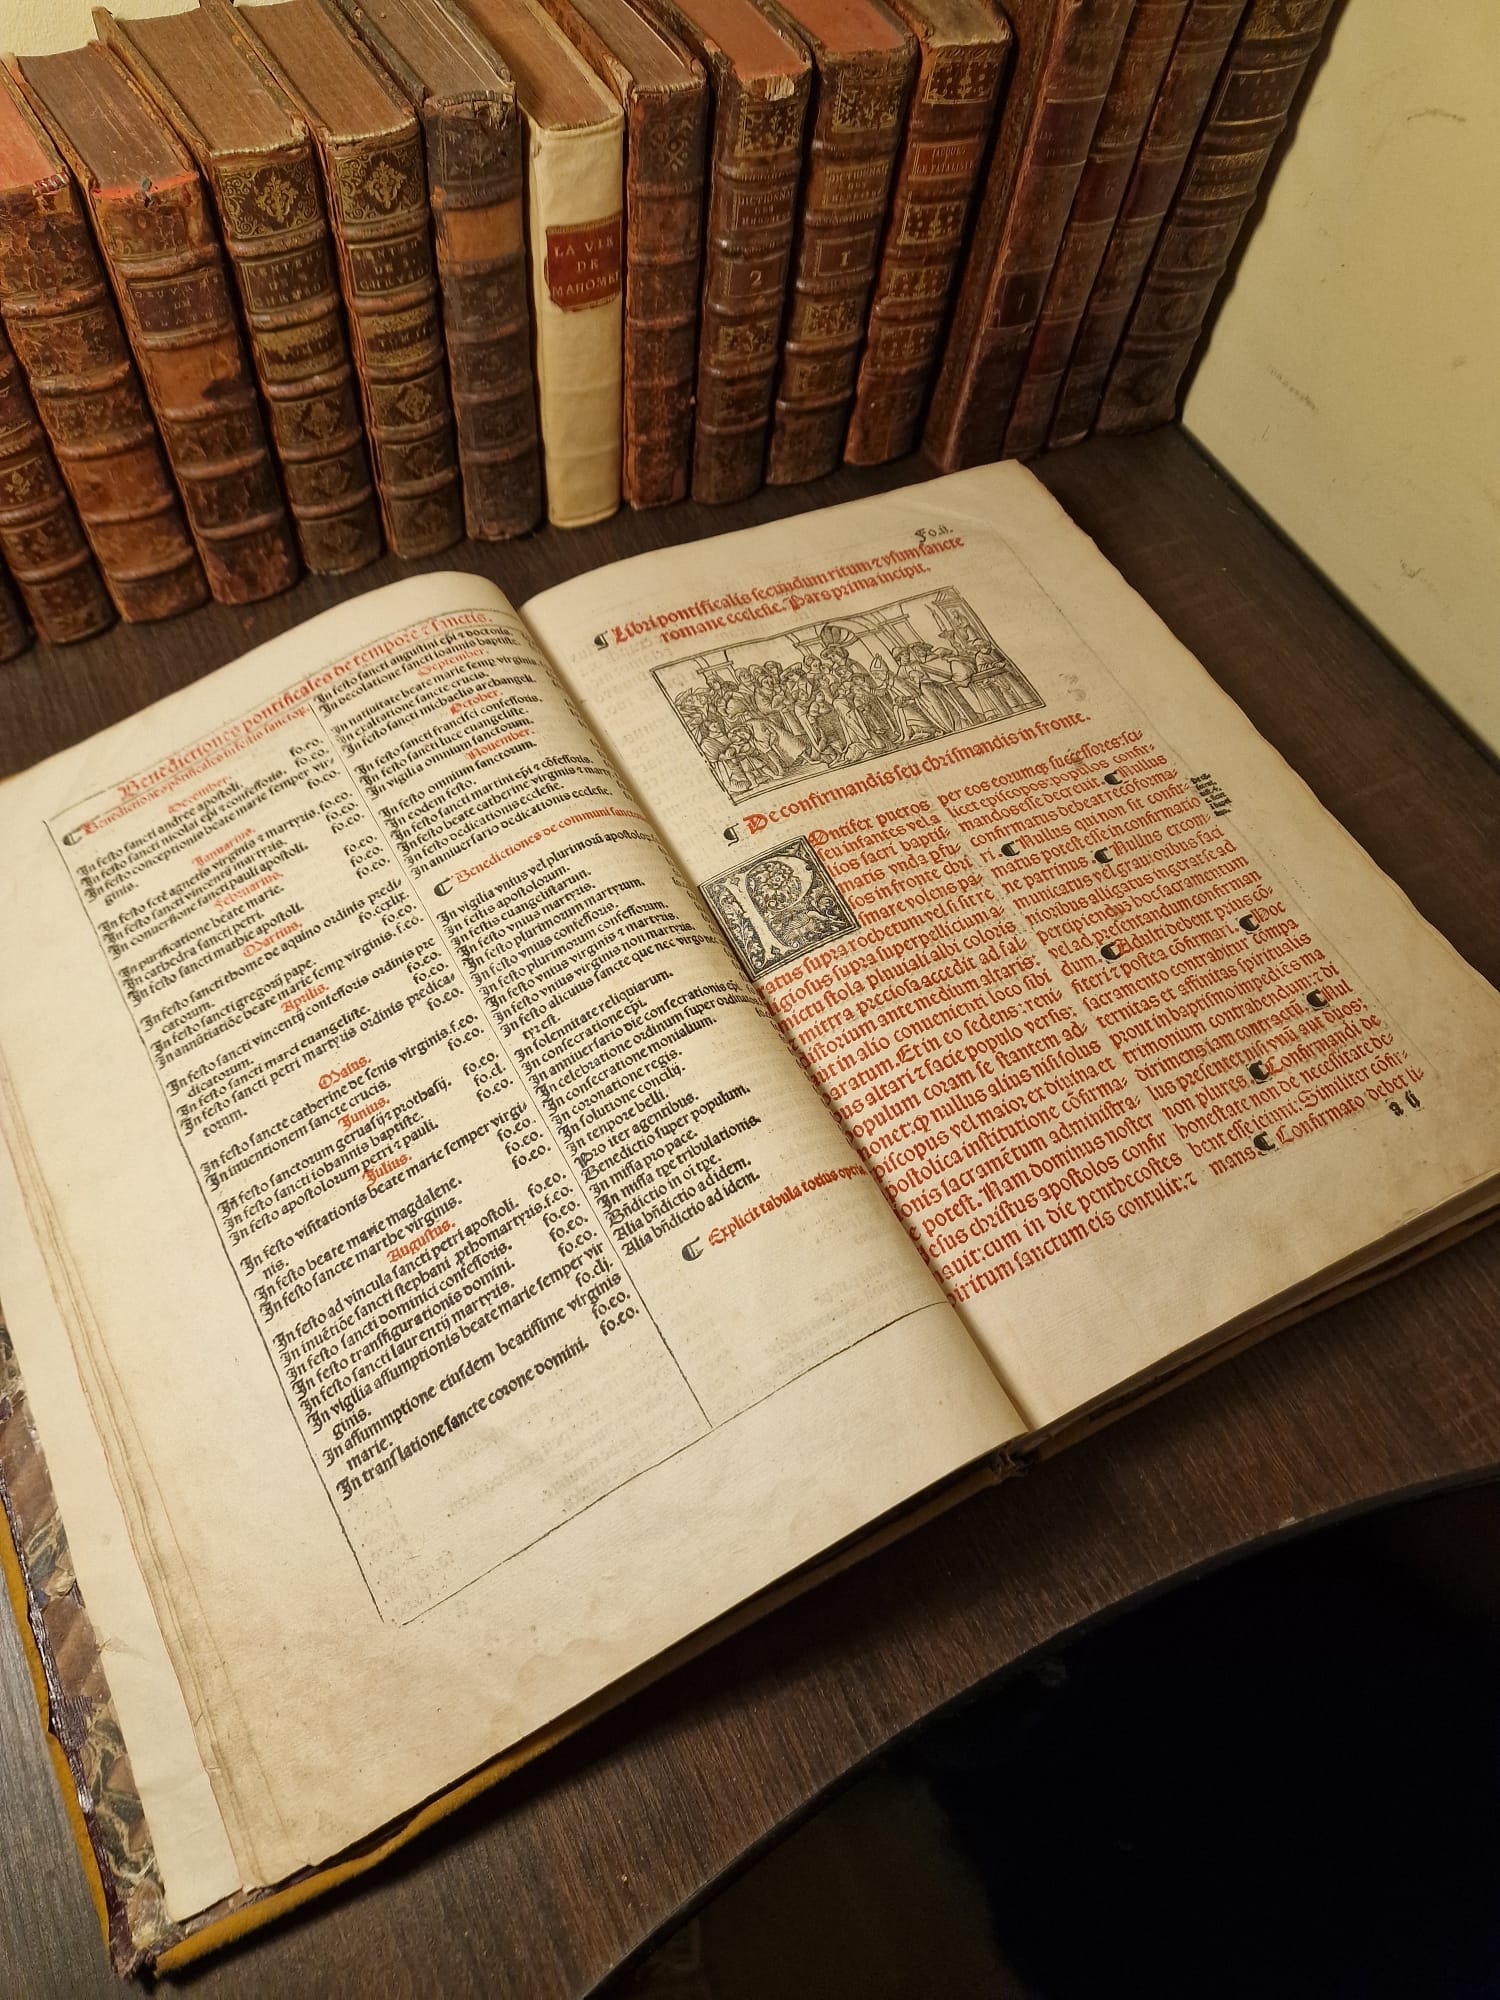 LA VIE
DE
MAHOMET
DICTIONNA
DES
2
DICTIONNA
DES
1
JACQUES
1
Benedictiones pontificales de tempore ⁊ sanctis.
Benedictiones pontificales in festis sanctoꝝ.
December.
In festo sancti andree apostoli. fo.eo.
In festo sancti nicolai epi ⁊ confessoris. fo.eo.
In festo conceptionis beate marie semper vir-
ginis. fo.eo.
Januarius.
In festo scte agnetis virginis ⁊ martyris. fo.eo.
In festo sancti vincentij martyris. fo.eo.
In conuersione sancti pauli apostoli. fo.eo.
Februarius.
In purificatione beate marie. fo.eo.
In cathedra sancti petri. fo.eo.
In festo sancti mathie apostoli. fo.eo.
Martius.
In festo sancti thome de aquino ordinis predi
catorum. fo.ccxlix.
In festo sancti gregorij pape. fo.eo.
In annūtiatiōe beate marie semp virginis. f.eo.
Aprilis.
In festo sancti vincentij confessoris ordinis pre
dicatorum. fo.eo.
In festo sancti marci euangeliste. fo.eo.
In festo sancti petri martyris ordinis predica-
torum. fo.eo.
Maius.
In festo sancte catherine de senis virginis. f.eo.
In inuentionem sancte crucis. fo.eo.
Junius.
In festo sanctorum geruasij ⁊ prothasij. fo.eo.
In festo sancti iohannis baptiste. fo.cl.
In festo apostolorum petri ⁊ pauli. fo.eo.
Julius.
In festo visitationis beate marie semper virgi-
nis. fo.eo.
In festo beate marie magdalene. fo.eo.
In festo sancte marthe virginis. fo.eo.
Augustus.
In festo ad vincula sancti petri apostoli. fo.eo.
In inuētiōe sancti stephani ꝓthomartyris. f.eo.
In festo sancti dominici confessoris. fo.eo.
In festo transfigurationis domini. fo.eo.
In festo sancti laurentij martyris. fo.eo.
In vigilia assumptionis beate marie semper vir
ginis. fo.clj.
In assummptione eiusdem beatissime virginis
marie. fo.eo.
In translatione sancte corone domini. fo.eo.
In festo sancti augustini epi ⁊ doctoris.
In decolatione sancti ioannis baptiste.
September.
In natiuitate beate marie semp virginis.
In exaltatione sancte crucis.
In festo sancti michaelis archangeli.
October.
In festo sancti francisci confessoris.
In festo sancti luce euangeliste.
In vigilia omnium sanctorum.
Nouember.
In festo omnium sanctorum.
In eodem festo.
In festo sancti martini epi ⁊ cōfessoris.
In festo beate catherine virginis ⁊ marty
In festo dedicationis ecclesie.
In anniuersario dedicationis ecclesie.
Benedictiones de communi sanctoru
In vigilia vnius vel plurimorū apostolo
In festis apostolorum.
In festis euangelistarum.
In festo vnius martyris.
In festo plurimorum martyrum.
In festo vnius confessoris.
In festo plurimorum confessorum.
In festo vnius virginis ⁊ martyris.
In festo vnius virginis non martyris.
In festo alicuius sancte que nec virgo nec
tyr est.
In solennitate reliquiarum.
In consecratione epi.
In anniuersario die consecrationis epi.
In celebratione ordinum super ordinatos
In consecratione monialium.
In coronatione regis.
In solutione concilij.
In tempore belli.
Pro iter agentibus.
Benedictio super populum.
In missa pro pace.
In missa tpe tribulationis.
Bñdictio in oī tpe.
Alia bñdictio ad idem.
Alia bñdictio ad idem.
Explicit tabula totius operis
Fo.ii.
Libri pontificalis secundum ritum ⁊ vsum sancte
romane ecclesie. Pars prima incipit.
De confirmandis seu chrismandis in fronte.
POntifex pueros
seu infantes vel a
lios sacri baptis-
matis vnda pfu-
sos in fronte chri
smare volens pa-
ratus supra rochetum vel si sit re
ligiosus supra superpellicium a-
mictu stola pluuiali albi coloris
⁊ mitra preciosa accedit ad fal-
distorium ante medium altaris:
aut in alio conuenienti loco sibi
paratum. Et in eo sedens: reni
bus altari ⁊ facie populo versis:
populum coram se stantem ad-
monet: ꝙ nullus alius nisi solus
episcopus vel maior ex diuina et
apostolica institutione cōfirma-
tionis sacramētum administra-
re potest. Nam dominus noster
Jesus christus apostolos confir
mauit: cum in die penthecostes
spiritum sanctum eis contulit: ⁊
per eos eorumqꝫ successores: sci-
licet episcopos populos confir-
mandos esse decreuit. Nullus
confirmatus debeat recōforma-
ri. Nullus qui non sit confir-
matus potest esse in confirmatio
ne patrinus. Nullus excom-
municatus vel grauioribus faci
nioribus alligatus ingerat se ad
percipiendū hoc sacramentum
vel ad presentandum confirman
dum. Adulti debent prius cō-
fiteri ⁊ postea cōfirmari. Hoc
sacramento contrahitur cōmpa
ternitas et affinitas spiritualis
prout in baptismo impediēs ma
trimonium contrahendum: ⁊ di
dirimens iam contractū. Nul
lus presentet nisi vnū aut duos:
non plures. Confirmandi de
honestate non de necessitate de-
bent esse ieiuni: Similiter cōfir-
mans. Confirmato debet li-
a ij